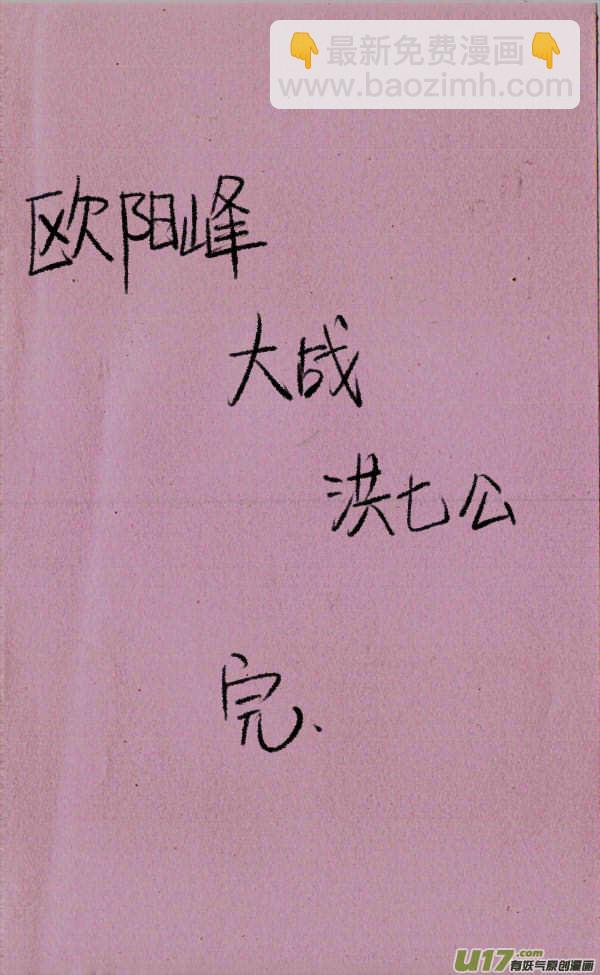 👇最新免费漫画👇
www.baozimh.com
欧阳峰
大战
洪七公
完、
U17.com
有妖气原创漫画